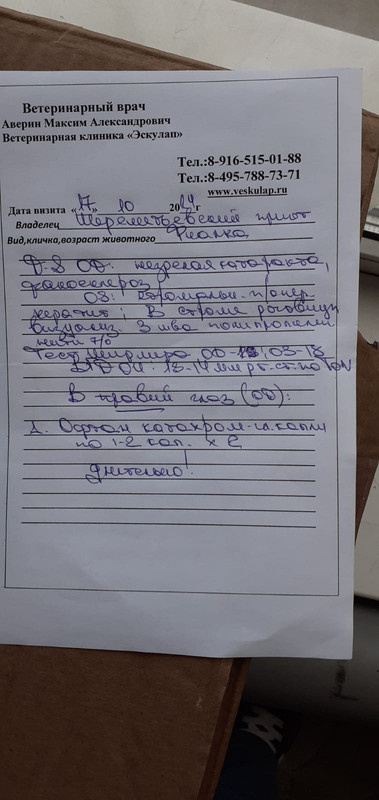 Ветеринарный врач
Аверин Максим Александрович
Ветеринарная клиника «Эскулап»
Тел.:8-916-515-01-88
Тел.:8-495-788-73-71
www.veskulap.ru
Дата визита «17» 10 2024 г
Владелец Шереметьевский приют
Вид,кличка,возраст животного Фианка
D-S OD: незрелая катаракта,
факосклероз
OS: кератит; В строме роговицы
визуализ. 3 шва полипропилен
нити 7/0
Тест Ширмера OD- OS-18
ВГД OU: 13-14 мм рт.ст. по
В правый глаз (OD):
1. Офтан катахром-гл.капли
по 1-2 кап. х 2
длительно!